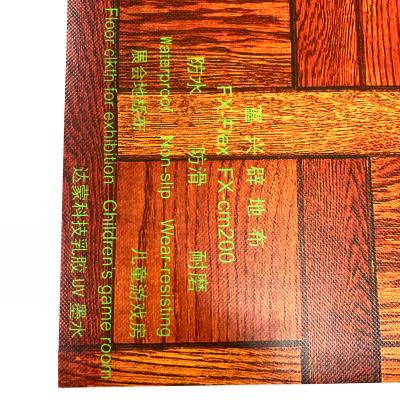 富兴辟地布
FX-Flex FX-cm200
防水 防滑 耐磨
Waterproof Non-slip Wear-resisting
展会地毯布 儿童游戏房
Floor clkth for exhibition Children's game room
达蒙科技乳胶 UV 墨水